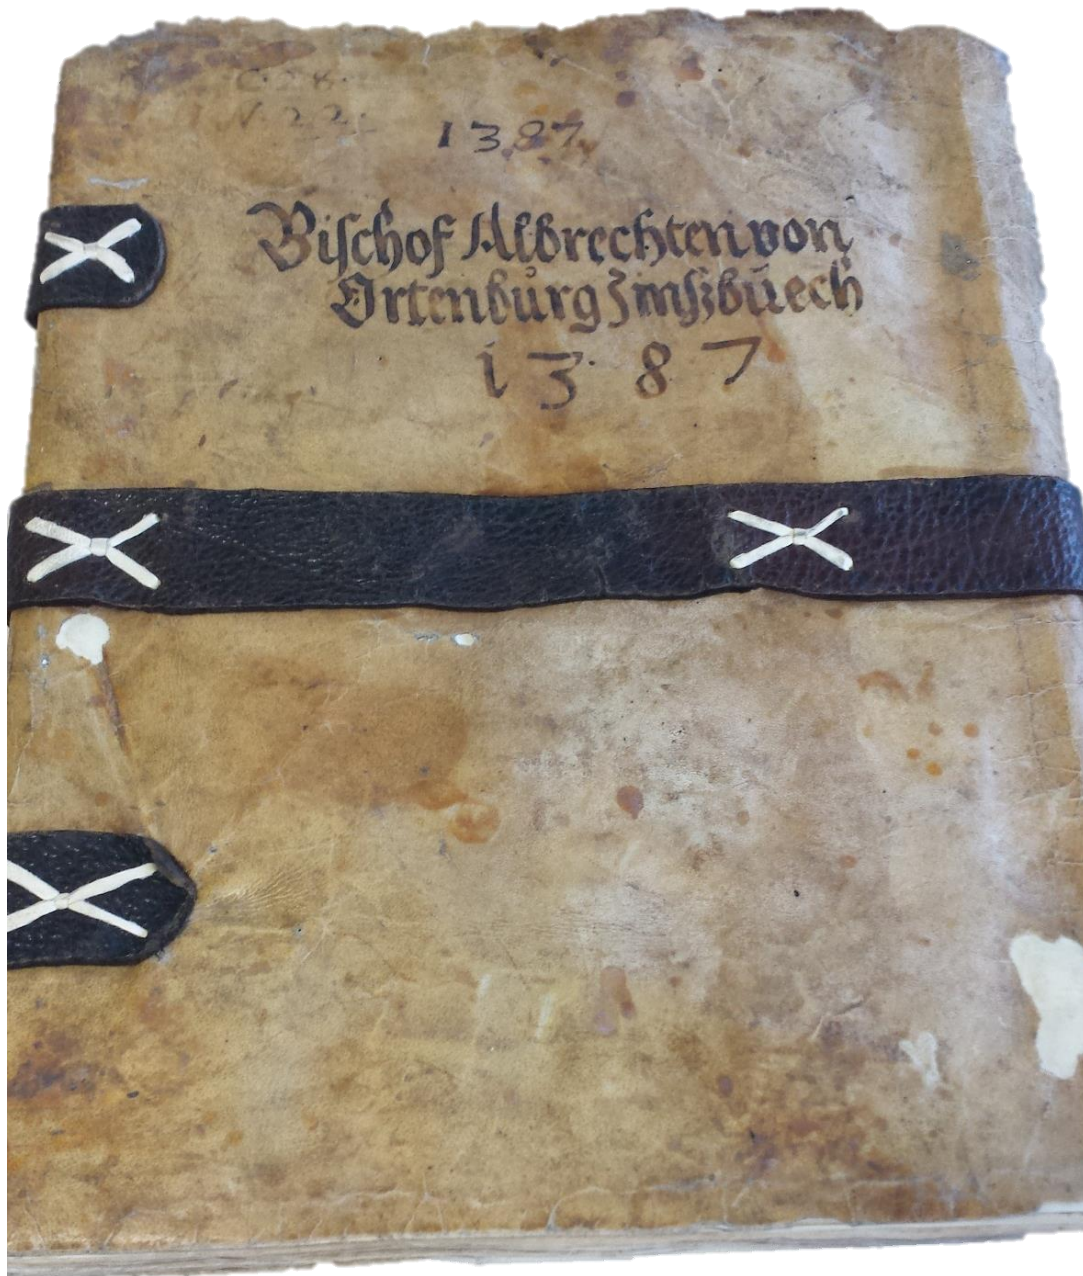 C 28.
N. 22.
1387
Bischof Albrechten von
Ortenbůrg Zinßbůech
1387